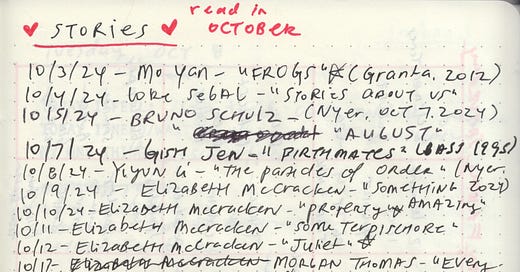 ♥ STORIES ♥ read in OCTOBER
10/3/24 - Mo Yan - "FROGS" (Granta, 2012)
10/4/24 Lore Segal - "STORIES ABOUT US"
10/5/24 - BRUNO SCHULZ - (NYer, OCT 7.2024)
" "AUGUST"
10/7/24 - GISH JEN - "BIRTHMATES" (BASS 1995)
10/8/24 - Yiyun Li - "The particles of ORDER" (NYer,
10/9/24 - Elizabeth McCracken - "SOMETHING 2024)
10/10/24 - Elizabeth McCracken - "property" AMAZING"
10/11 - Elizabeth McCracken - "SOME TERPSICHORE"
10/12 - Elizabeth McCracken - "Juliet"
10/17 - MORGAN THOMAS - "EVERY